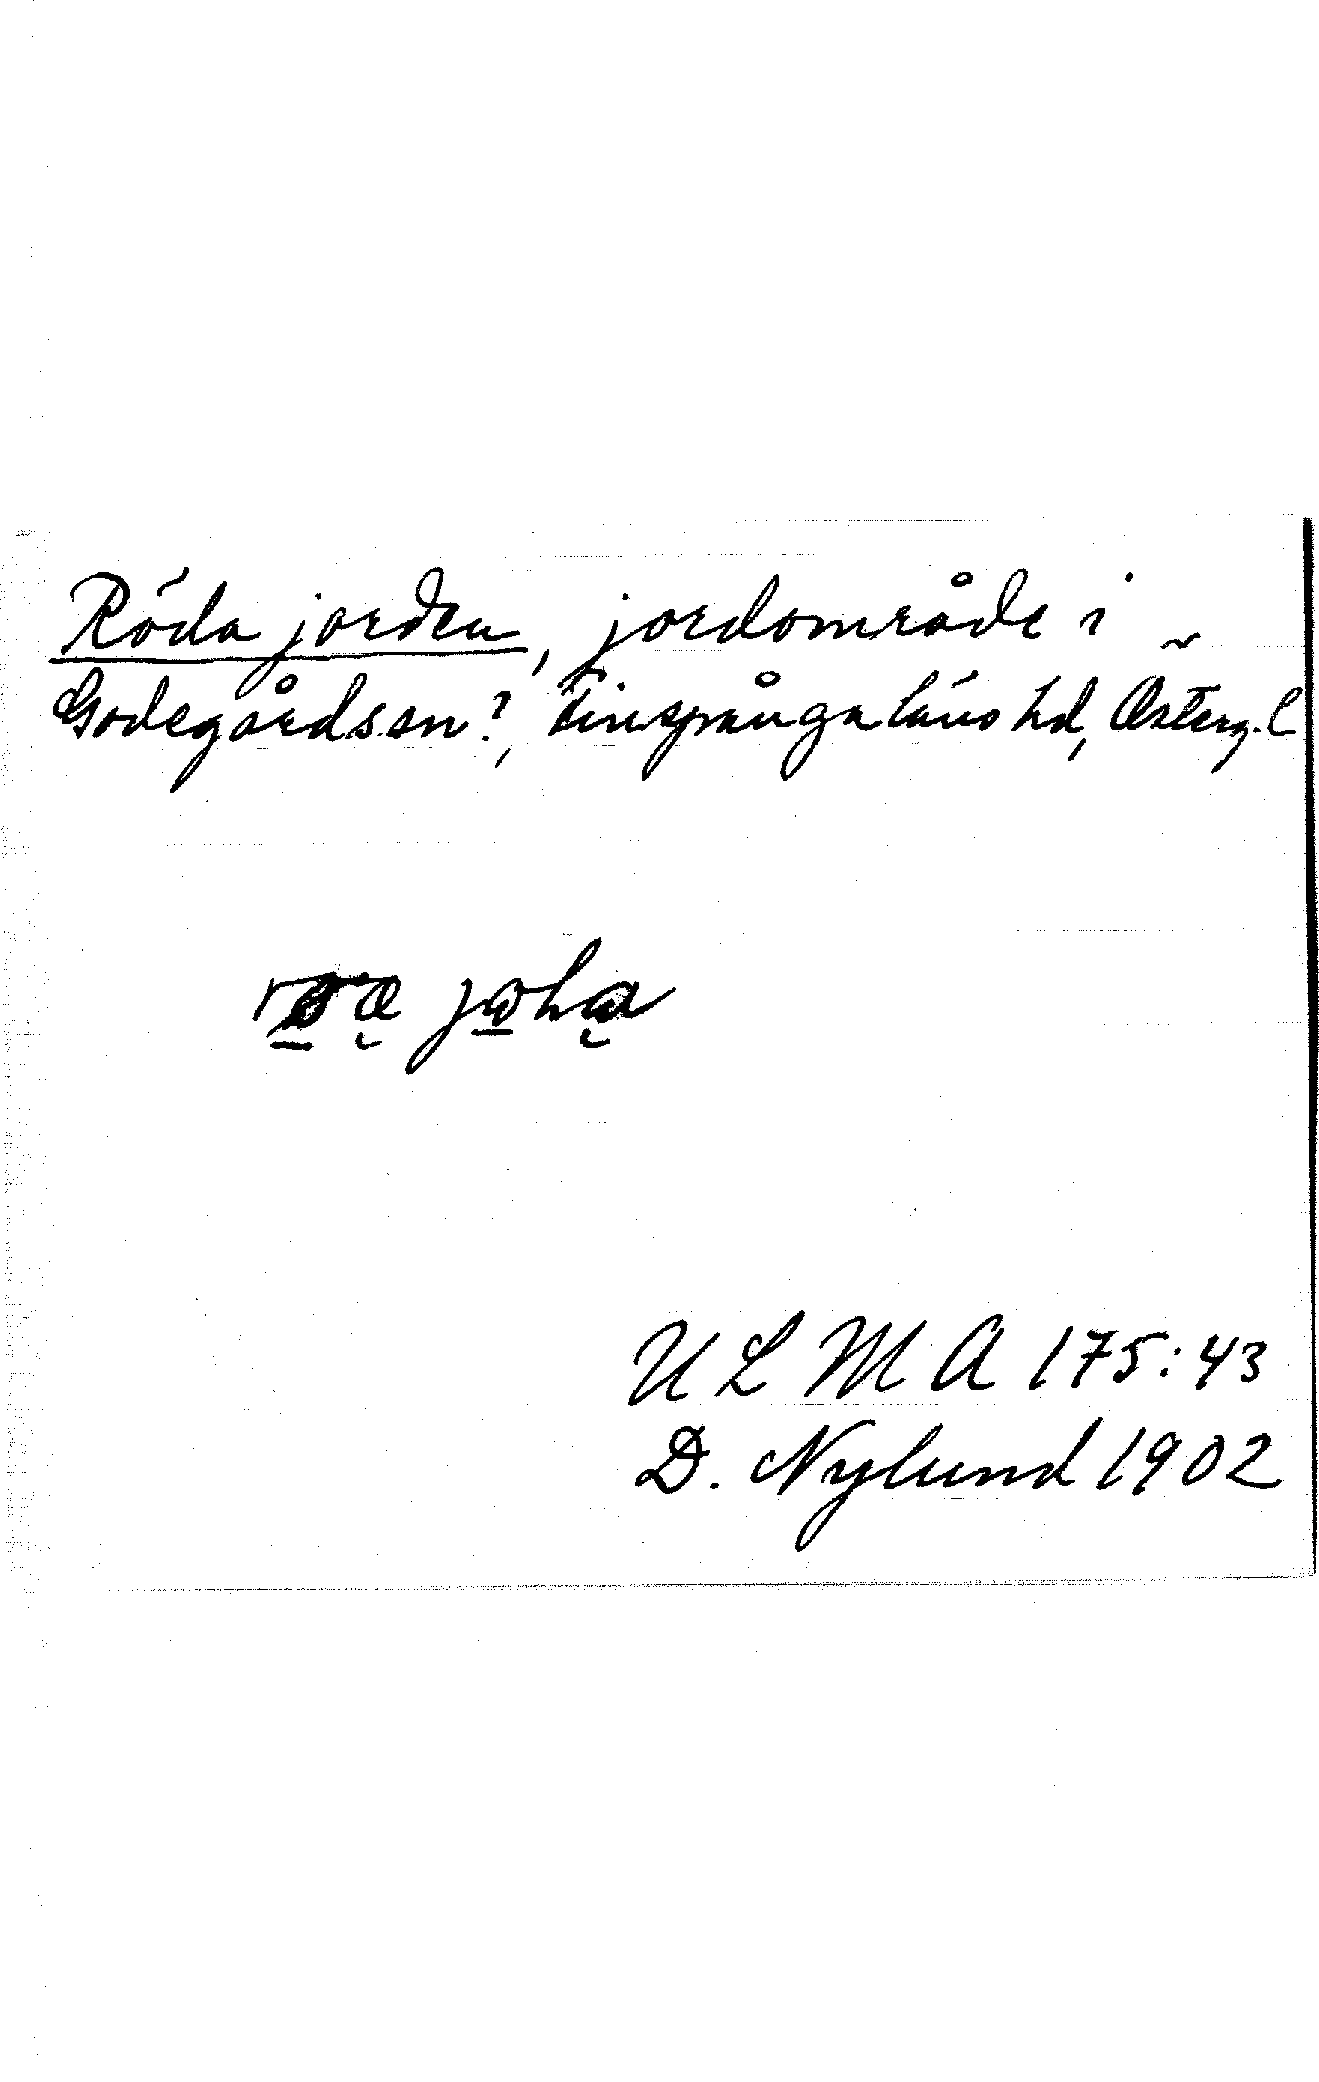 Röda jorden, jordområde i
Godegårds sn?, Finspånga läns hd, Österg. l
ULMA 175:43
D. Nylund 1902